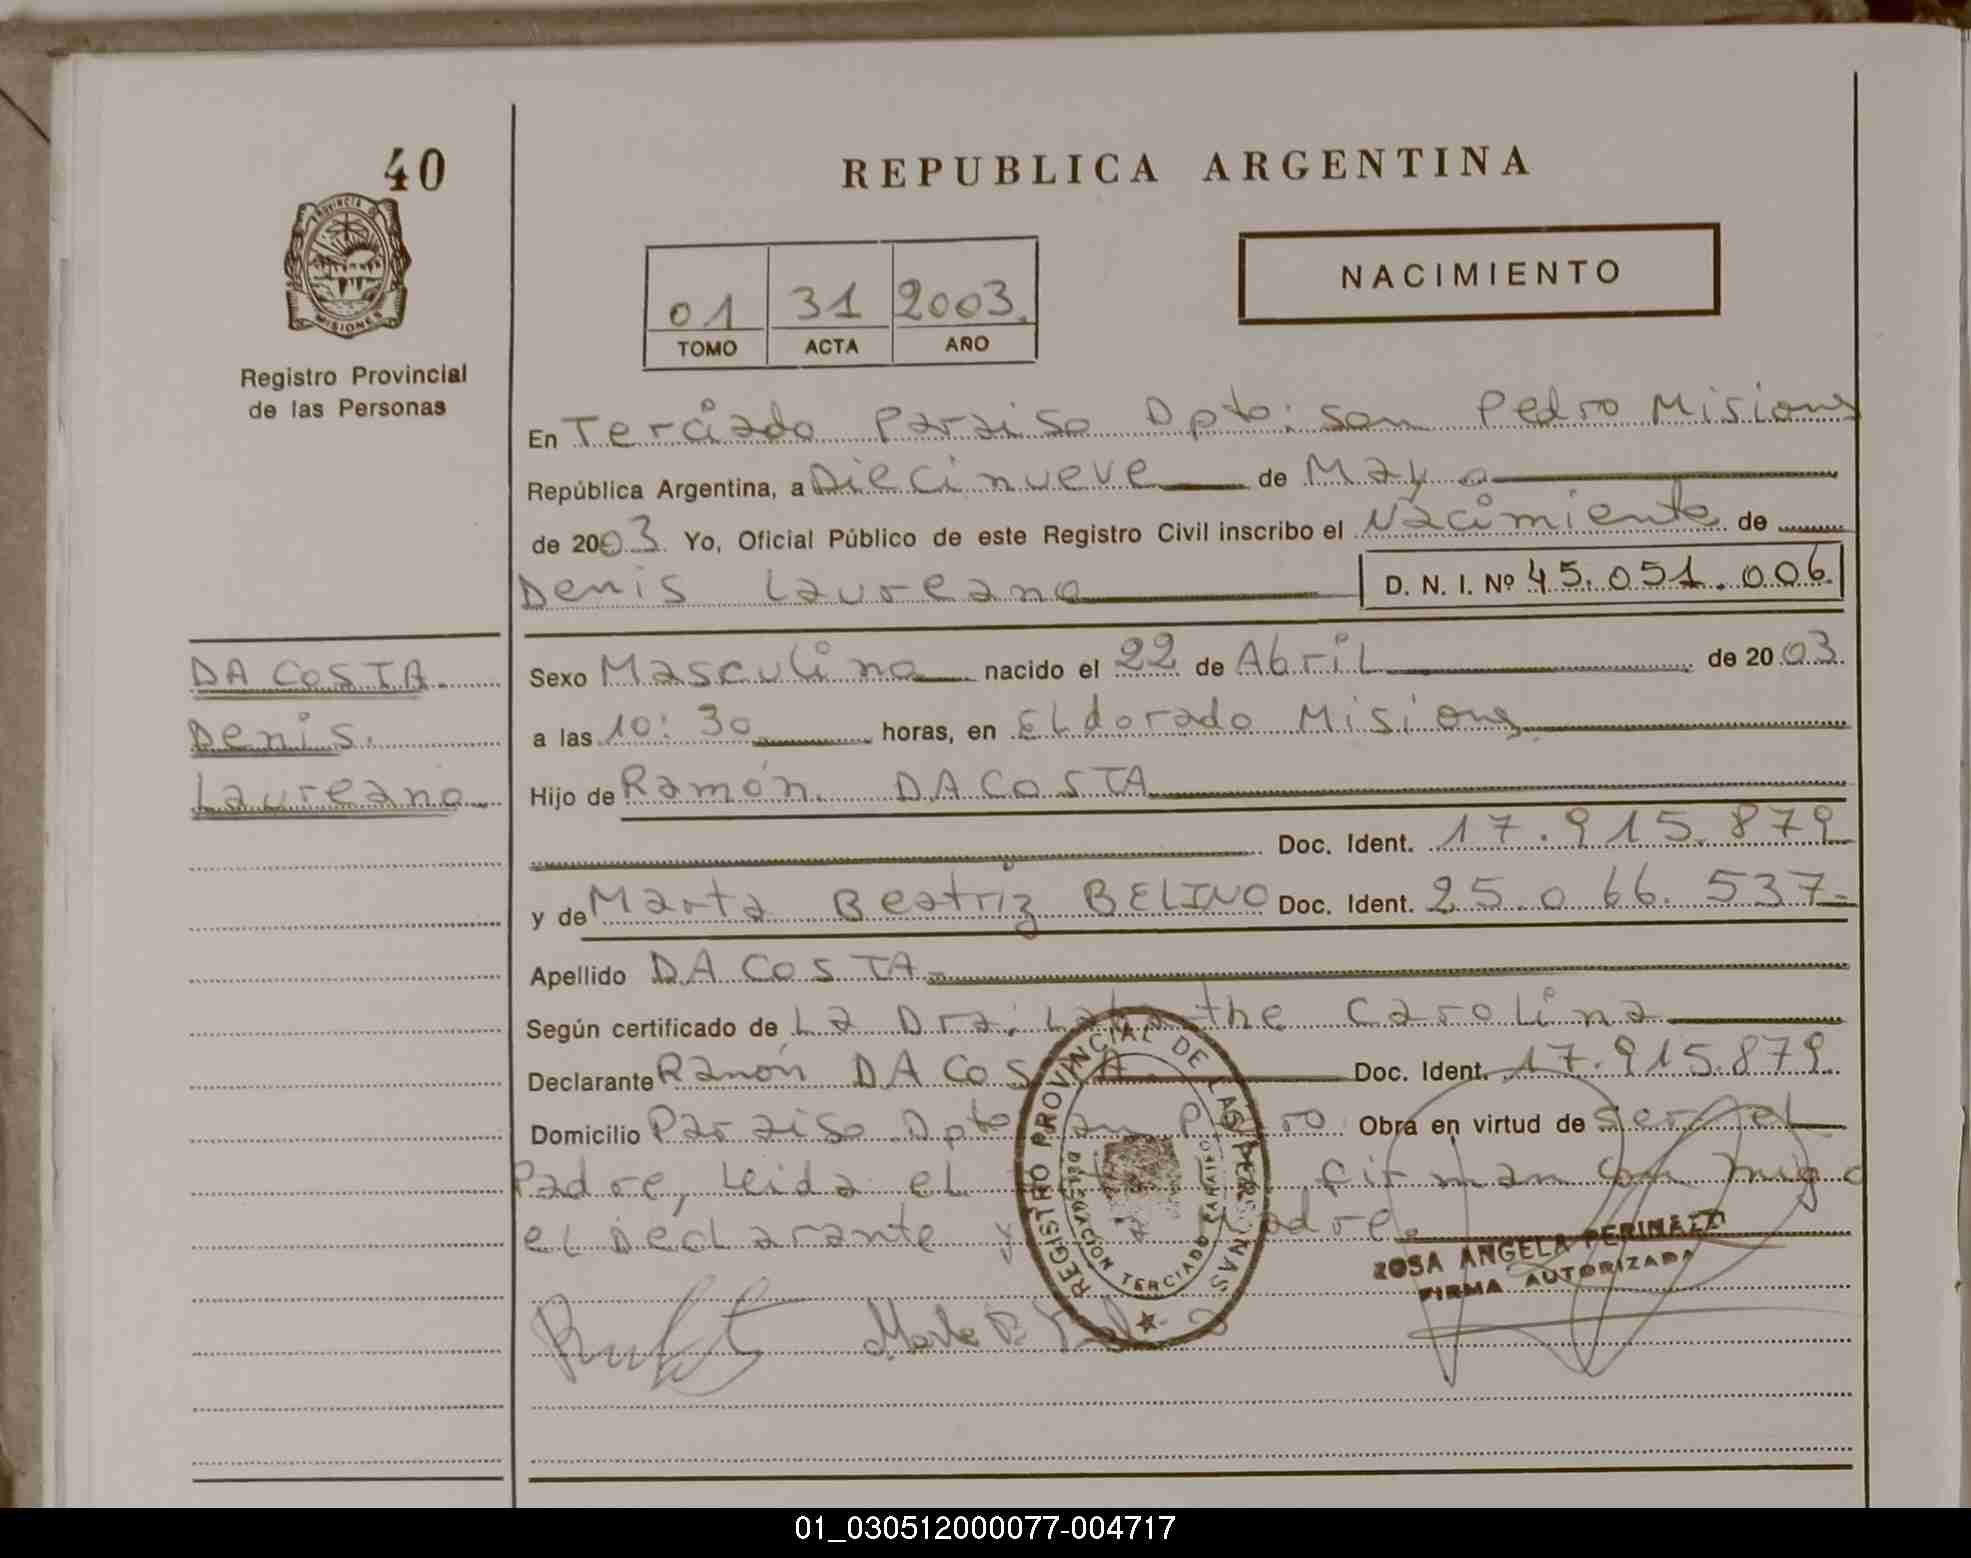 40
PROVINCIA DE
MISIONES
Registro Provincial
de las Personas
REPUBLICA ARGENTINA
01 31 2003.
TOMO ACTA AÑO
NACIMIENTO
En Terciado Paraiso Dpto: San Pedro Misiones
República Argentina, a Diecinueve de Mayo
de 2003. Yo, Oficial Público de este Registro Civil inscribo el Nacimiento de
Denis Laureano D. N. I. Nº 45.051.006.
DA COSTA.
Denis.
Laureano
Sexo Masculino nacido el 22 de Abril de 2003.
a las 10:30 horas, en Eldorado Misiones
Hijo de Ramón. DA COSTA
Doc. Ident. 17.915.879
y de Marta Beatriz BELINO Doc. Ident. 25.066.537-
Apellido DA COSTA-
Según certificado de La Dra. the Carolina
Declarante Ramón DA COSTA. Doc. Ident. 17.915.879.
Domicilio Paraiso Dpto San Pedro Obra en virtud de ser el
Padre, Leida el firman conmigo
el Declarante y la Madre.
REGISTRO PROVINCIAL DE LAS PERSONAS
DELEGACION TERCIADO PARAISO
ROSA ANGELA PERINAZZI
FIRMA AUTORIZADA
01_030512000077-004717